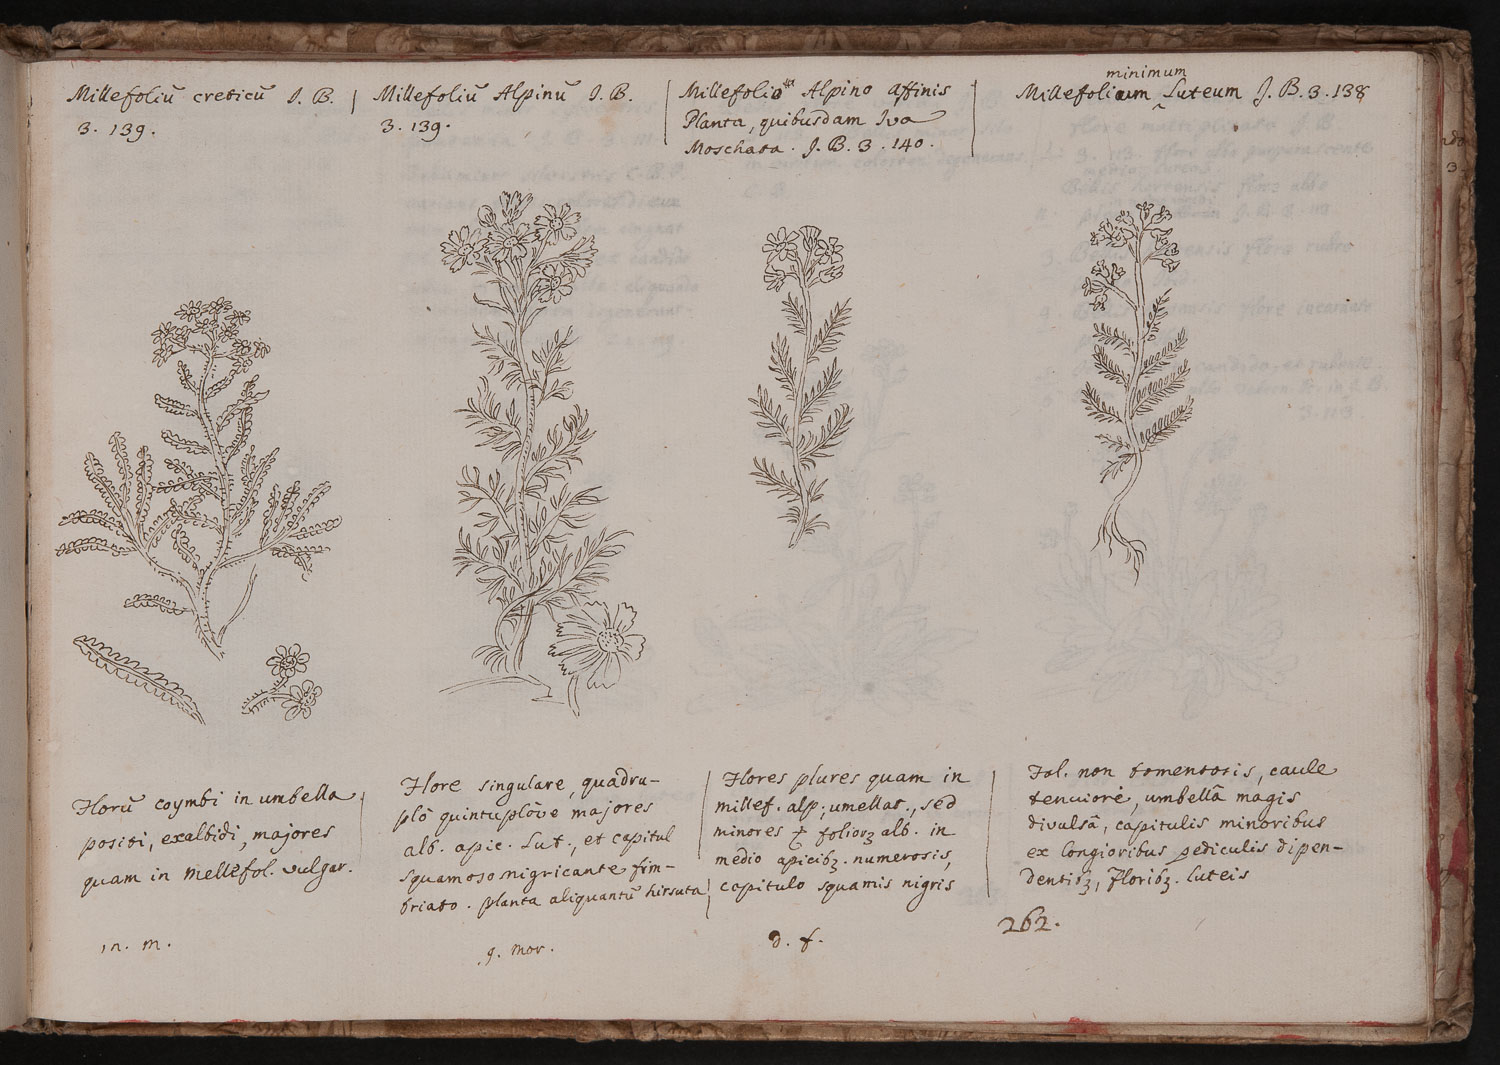 Millefoliū creticū I. B.
3. 139.
Millefoliū Alpinū I. B.
3. 139.
Millefolio Alpino Affinis
Planta, quibusdam Iva
Moschata. J. B. 3. 140.
minimum
Millefolium Luteum J. B. 3. 138
Florū coymbi in umbella
positi, exalbidi, majores
quam in mellefol. vulgar.
in. m.
Flore singulare, quadru-
plò quintuplòve majores
alb. apic. Lut., et capitul
squamoso nigricante fim-
briato. planta aliquantū hirsuta
g. mor.
Flores plures quam in
millef. alp; umellat., sed
minores & foliorꝫ alb. in
medio apicibꝫ. numerosis,
capitulo squamis nigris
d. f.
Fol. non tomentosis, caule
tenuiore, umbellâ magis
divulsâ, capitulis minoribus
ex longioribus pediculis dipen-
dentibꝫ, floribꝫ. luteis
262.